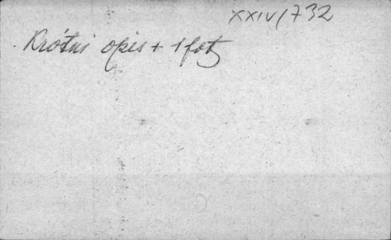 XXIV/732
Krótki opis + 1 fot